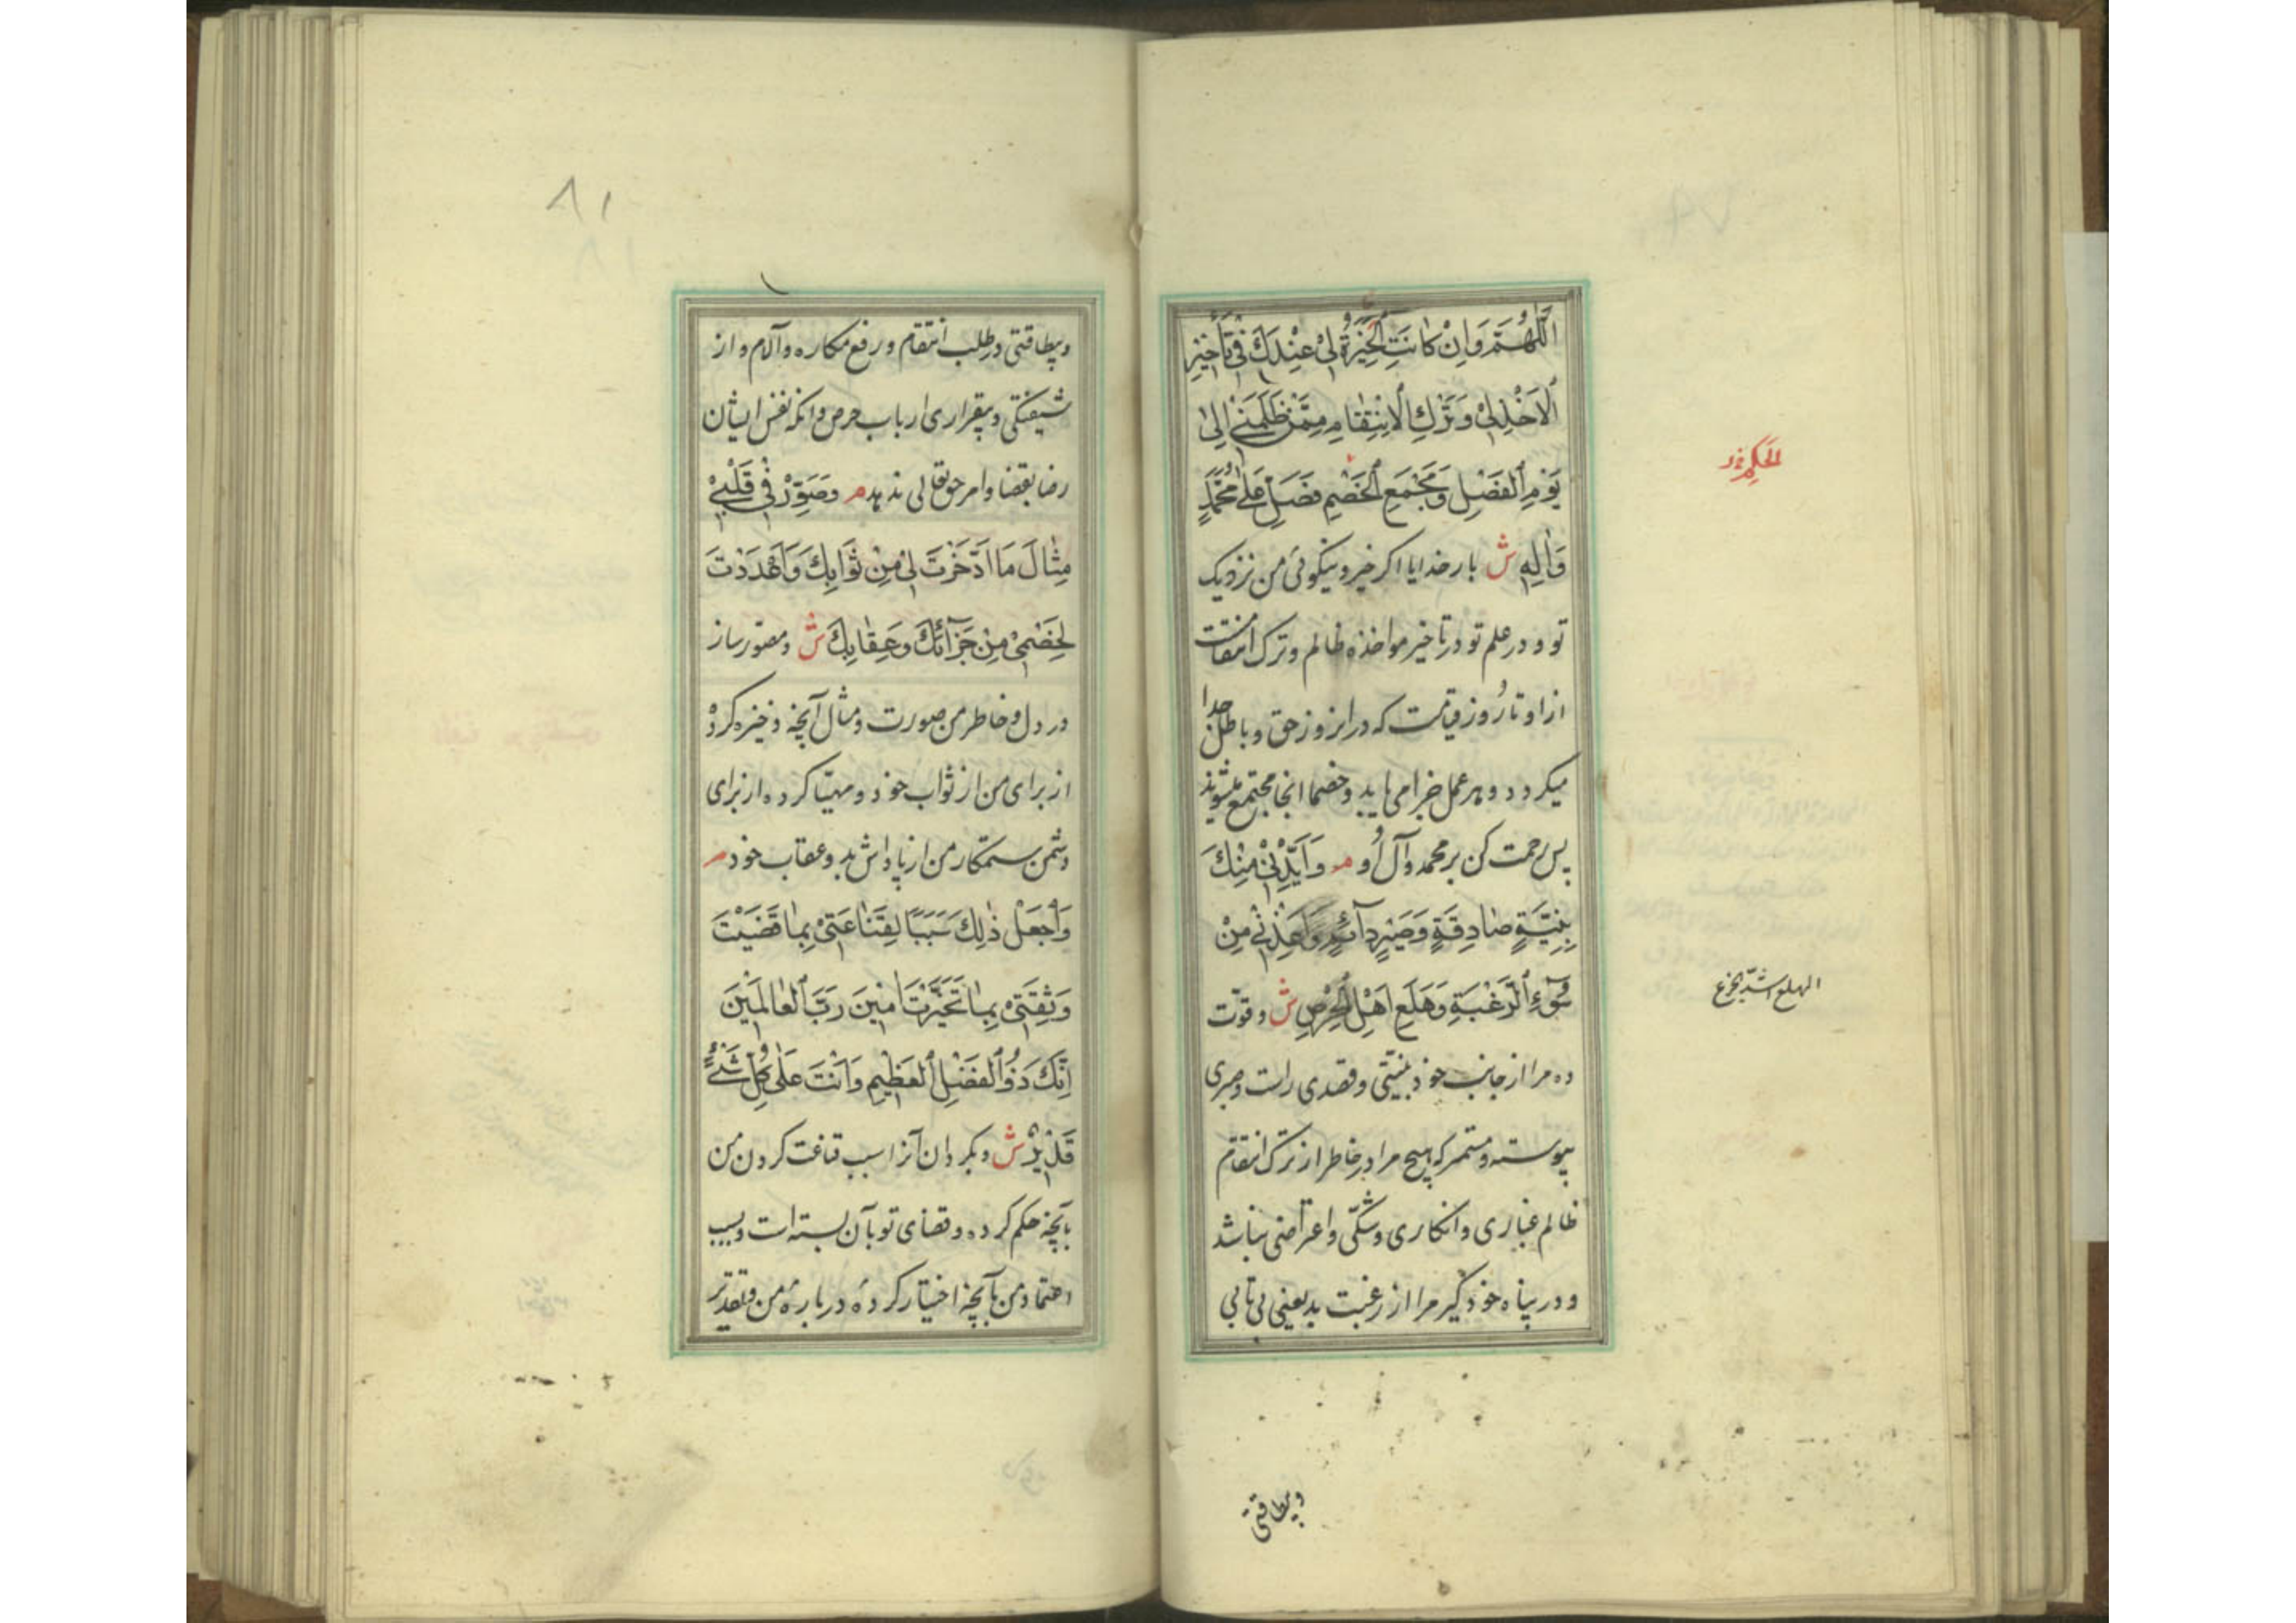 اَللّٰهُمَّ وَاِنْ كانَتِ الْخِيَرَةُ لى عِنْدَكَ فى تَأْخيرِ
الْاَخْذِ لى وَتَرْكِ الْاِنْتِقامِ مِمَّنْ ظَلَمَنى اِلى
يَوْمِ الْفَصْلِ وَمَجْمَعِ الْخَصْمِ فَصَلِّ عَلى مُحَمَّدٍ
وَاٰلِهِ ش بار خدایا اکر خیر و نیکوئی من نزدیک
تو و در علم تو در تاخیر مواخذه ظالم و ترک انتقامت
از او تا روز قیامت که در انروز حق و باطل جدا
میکردد و هر عمل جزا می یابد و خصما انجا مجتمع میشوند
پس رحمت کن بر محمد و آل او م وَاَيِّدْنى مِنْكَ
بِنِيَّةٍ صادِقَةٍ وَصَبْرٍ دآئِمٍ وَاَعِذْنى مِنْ
سُوٓءِ الرَّغْبَةِ وَهَلَعِ اَهْلِ الْحِرْصِ ش و قوّت
ده مرا از جانب خود بنیّتی و قصدی راست و صبری
پیوسته و مستمر که هیچ مرا در خاطر از ترک انتقام
ظالم غباری و انکاری و شکّی و اعتراضی نباشد
و در پناه خود کیر مرا از رغبت بد یعنی بی تابی
الهلع اشد الجزع
وبیطاقتی
٨١
وبیطاقتی و طلب انتقام و رفع مکاره و آلام و از
شیفتکی و بیقراری ارباب حرص و انکه نفس ایشان
رضا بقضا و امر حق تعالی ندهد م وَصَوِّرْ فى قَلْبى
مِثالَ مَا ادَّخَرْتَ لى مِنْ ثَوابِكَ وَاَعْدَدْتَ
لِخَصْمى مِنْ جَزآئِكَ وَعِقابِكَ ش و مصوّر ساز
در دل و خاطر من صورت و مثال آنچه ذخیره کرده
از برای من از ثواب خود و مهیّا کرده از برای
دشمن ستمکار من از پاداش بد و عقاب خود م
وَاجْعَلْ ذٰلِكَ سَبَبًا لِقَناعَتى بِما قَضَيْتَ
وَثِقَتى بِما تَخَيَّرْتَ اٰمينَ رَبَّ الْعالَمينَ
اِنَّكَ ذُو الْفَضْلِ الْعَظيمِ وَاَنْتَ عَلى كُلِّ شَىْءٍ
قَديرٌ ش و بکردان آنرا سبب قناعت کردن من
بآنچه حکم کرده و قضای تو بآن بسته است و سبب
اعتماد من بآنچه اختیار کرده درباره من و تقدیر